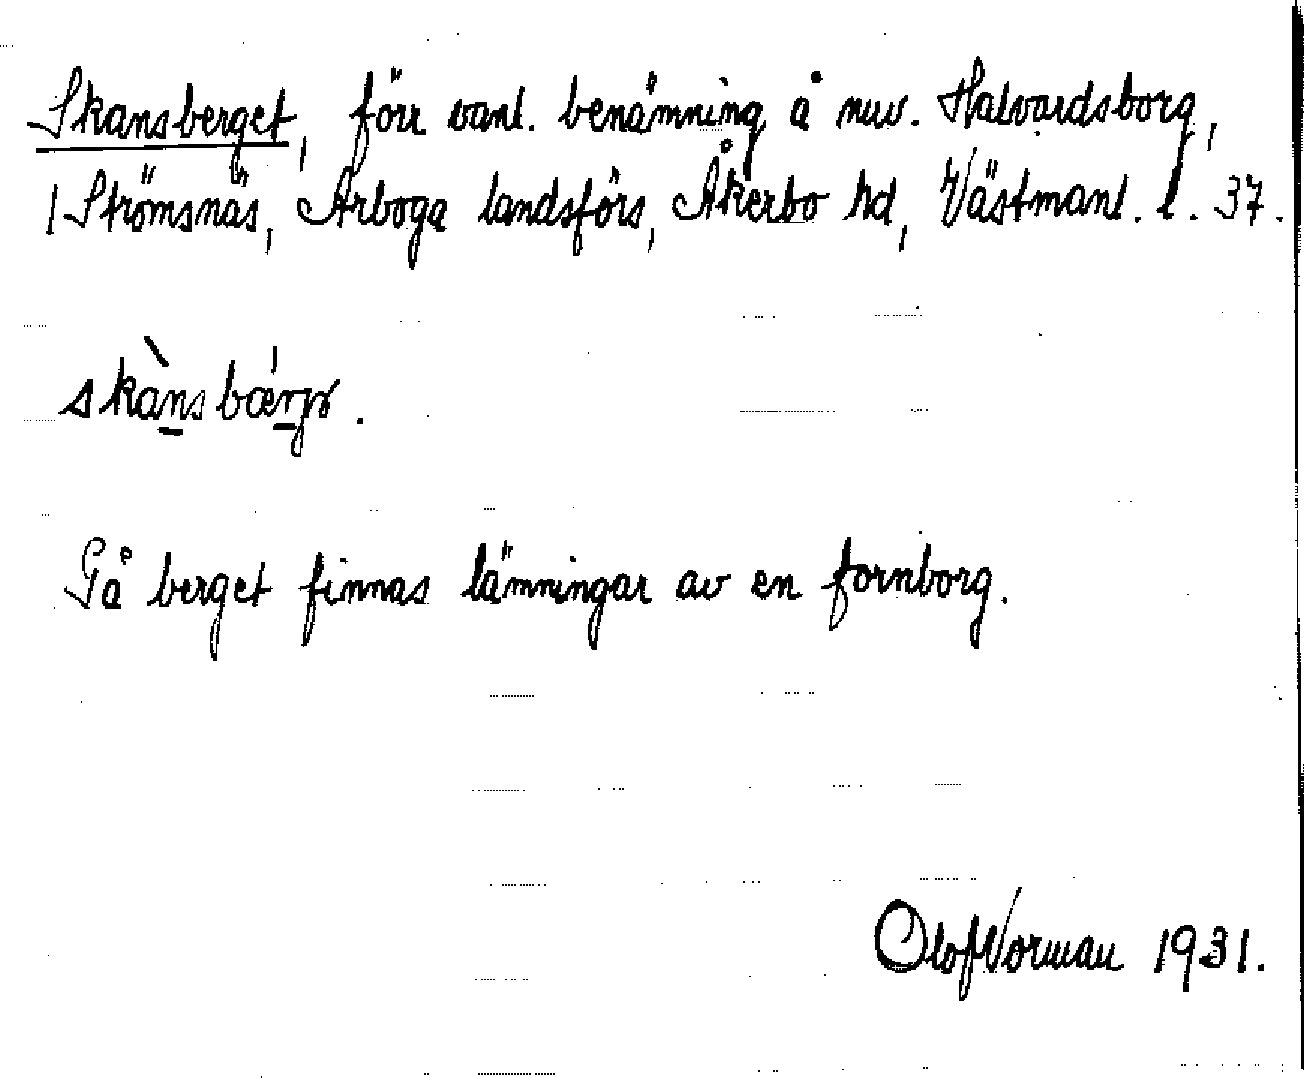 Skansberget, förr vanl. benämning å nuv. Halvardsborg,
/ Strömsnäs, Arboga landsförs, Åkerbo hd, Västmanl. l. 37.
skànsbær̀jə.
På berget finnas lämningar av en fornborg.
Olof Norman 1931.